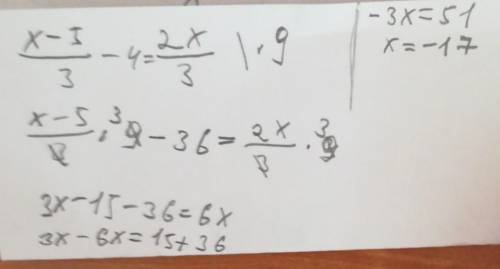 (x-5)/3 - 4 = 2x/3 \ · 9
(x-5)/3 · 9 3 - 36 = 2x/3 · 9 3
3x-15-36=6x
3x-6x=15+36
-3x=51
x=-17